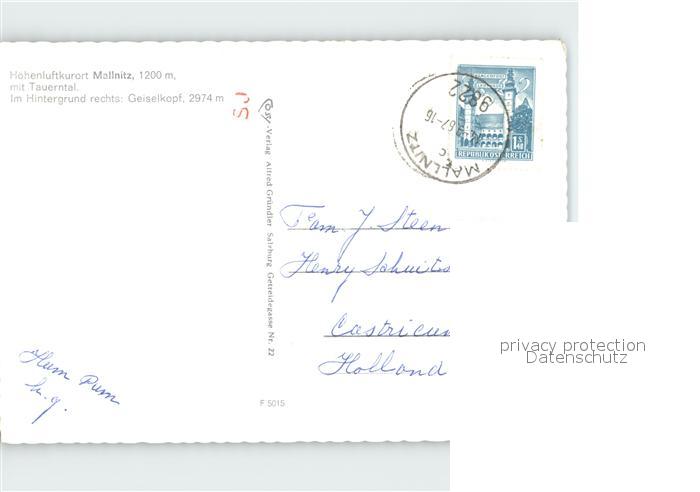 Höhenluftkurort Mallnitz, 1200 m,
mit Tauerntal.
Im Hintergrund rechts: Geiselkopf, 2974 m
SJ
Cosy-Verlag Alfred Gründler Salzburg Getreidegasse Nr. 22
9822
MALLNITZ
1S40
REPUBLIK ÖSTERREICH
Fam. J. Steen
Henry
Castricum
Holland
F 5015
privacy protection
Datenschutz